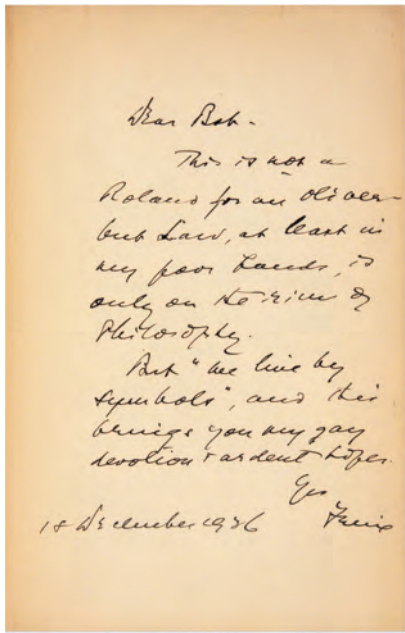 Dear Bob -
This is not a
Roland for an Oliver -
but Law, at least in
my poor hands, is
only on the rim of
Philosophy.
But "we live by
symbols", and this
brings you my gay
devotion + ardent hopes.
Yrs
18 December 1936 Felix